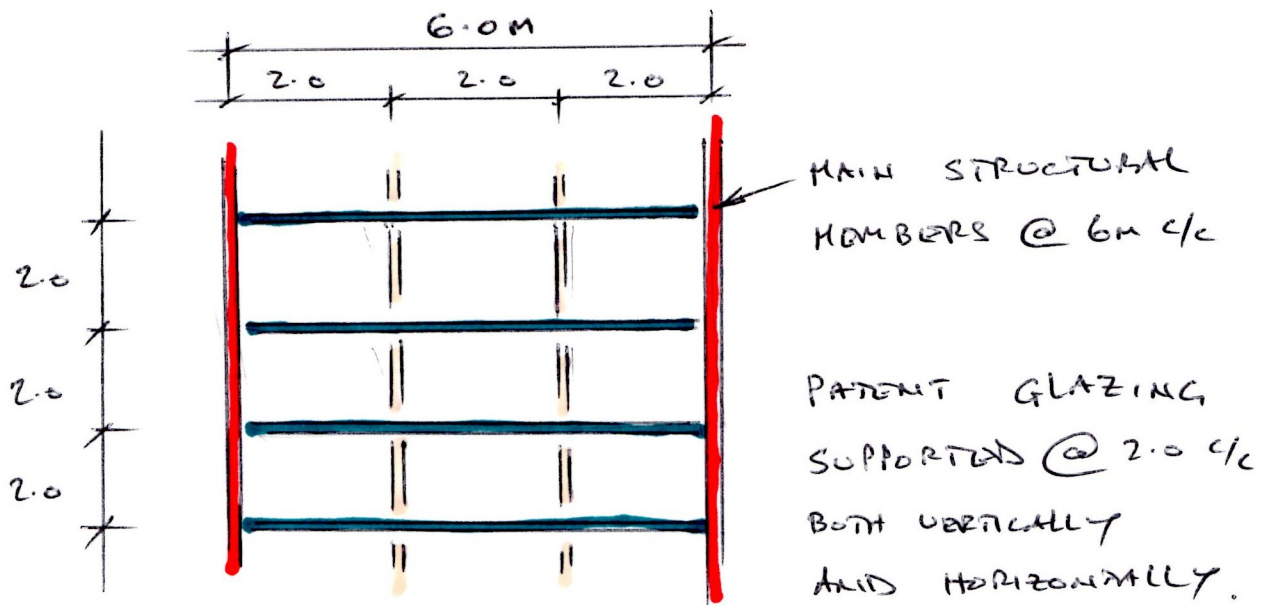 6.0M
2.0 2.0 2.0
MAIN STRUCTURAL
MEMBERS @ 6M c/c
2.0
2.0
2.0
PATENT GLAZING
SUPPORTED @ 2.0 c/c
BOTH VERTICALLY
AND HORIZONTALLY.